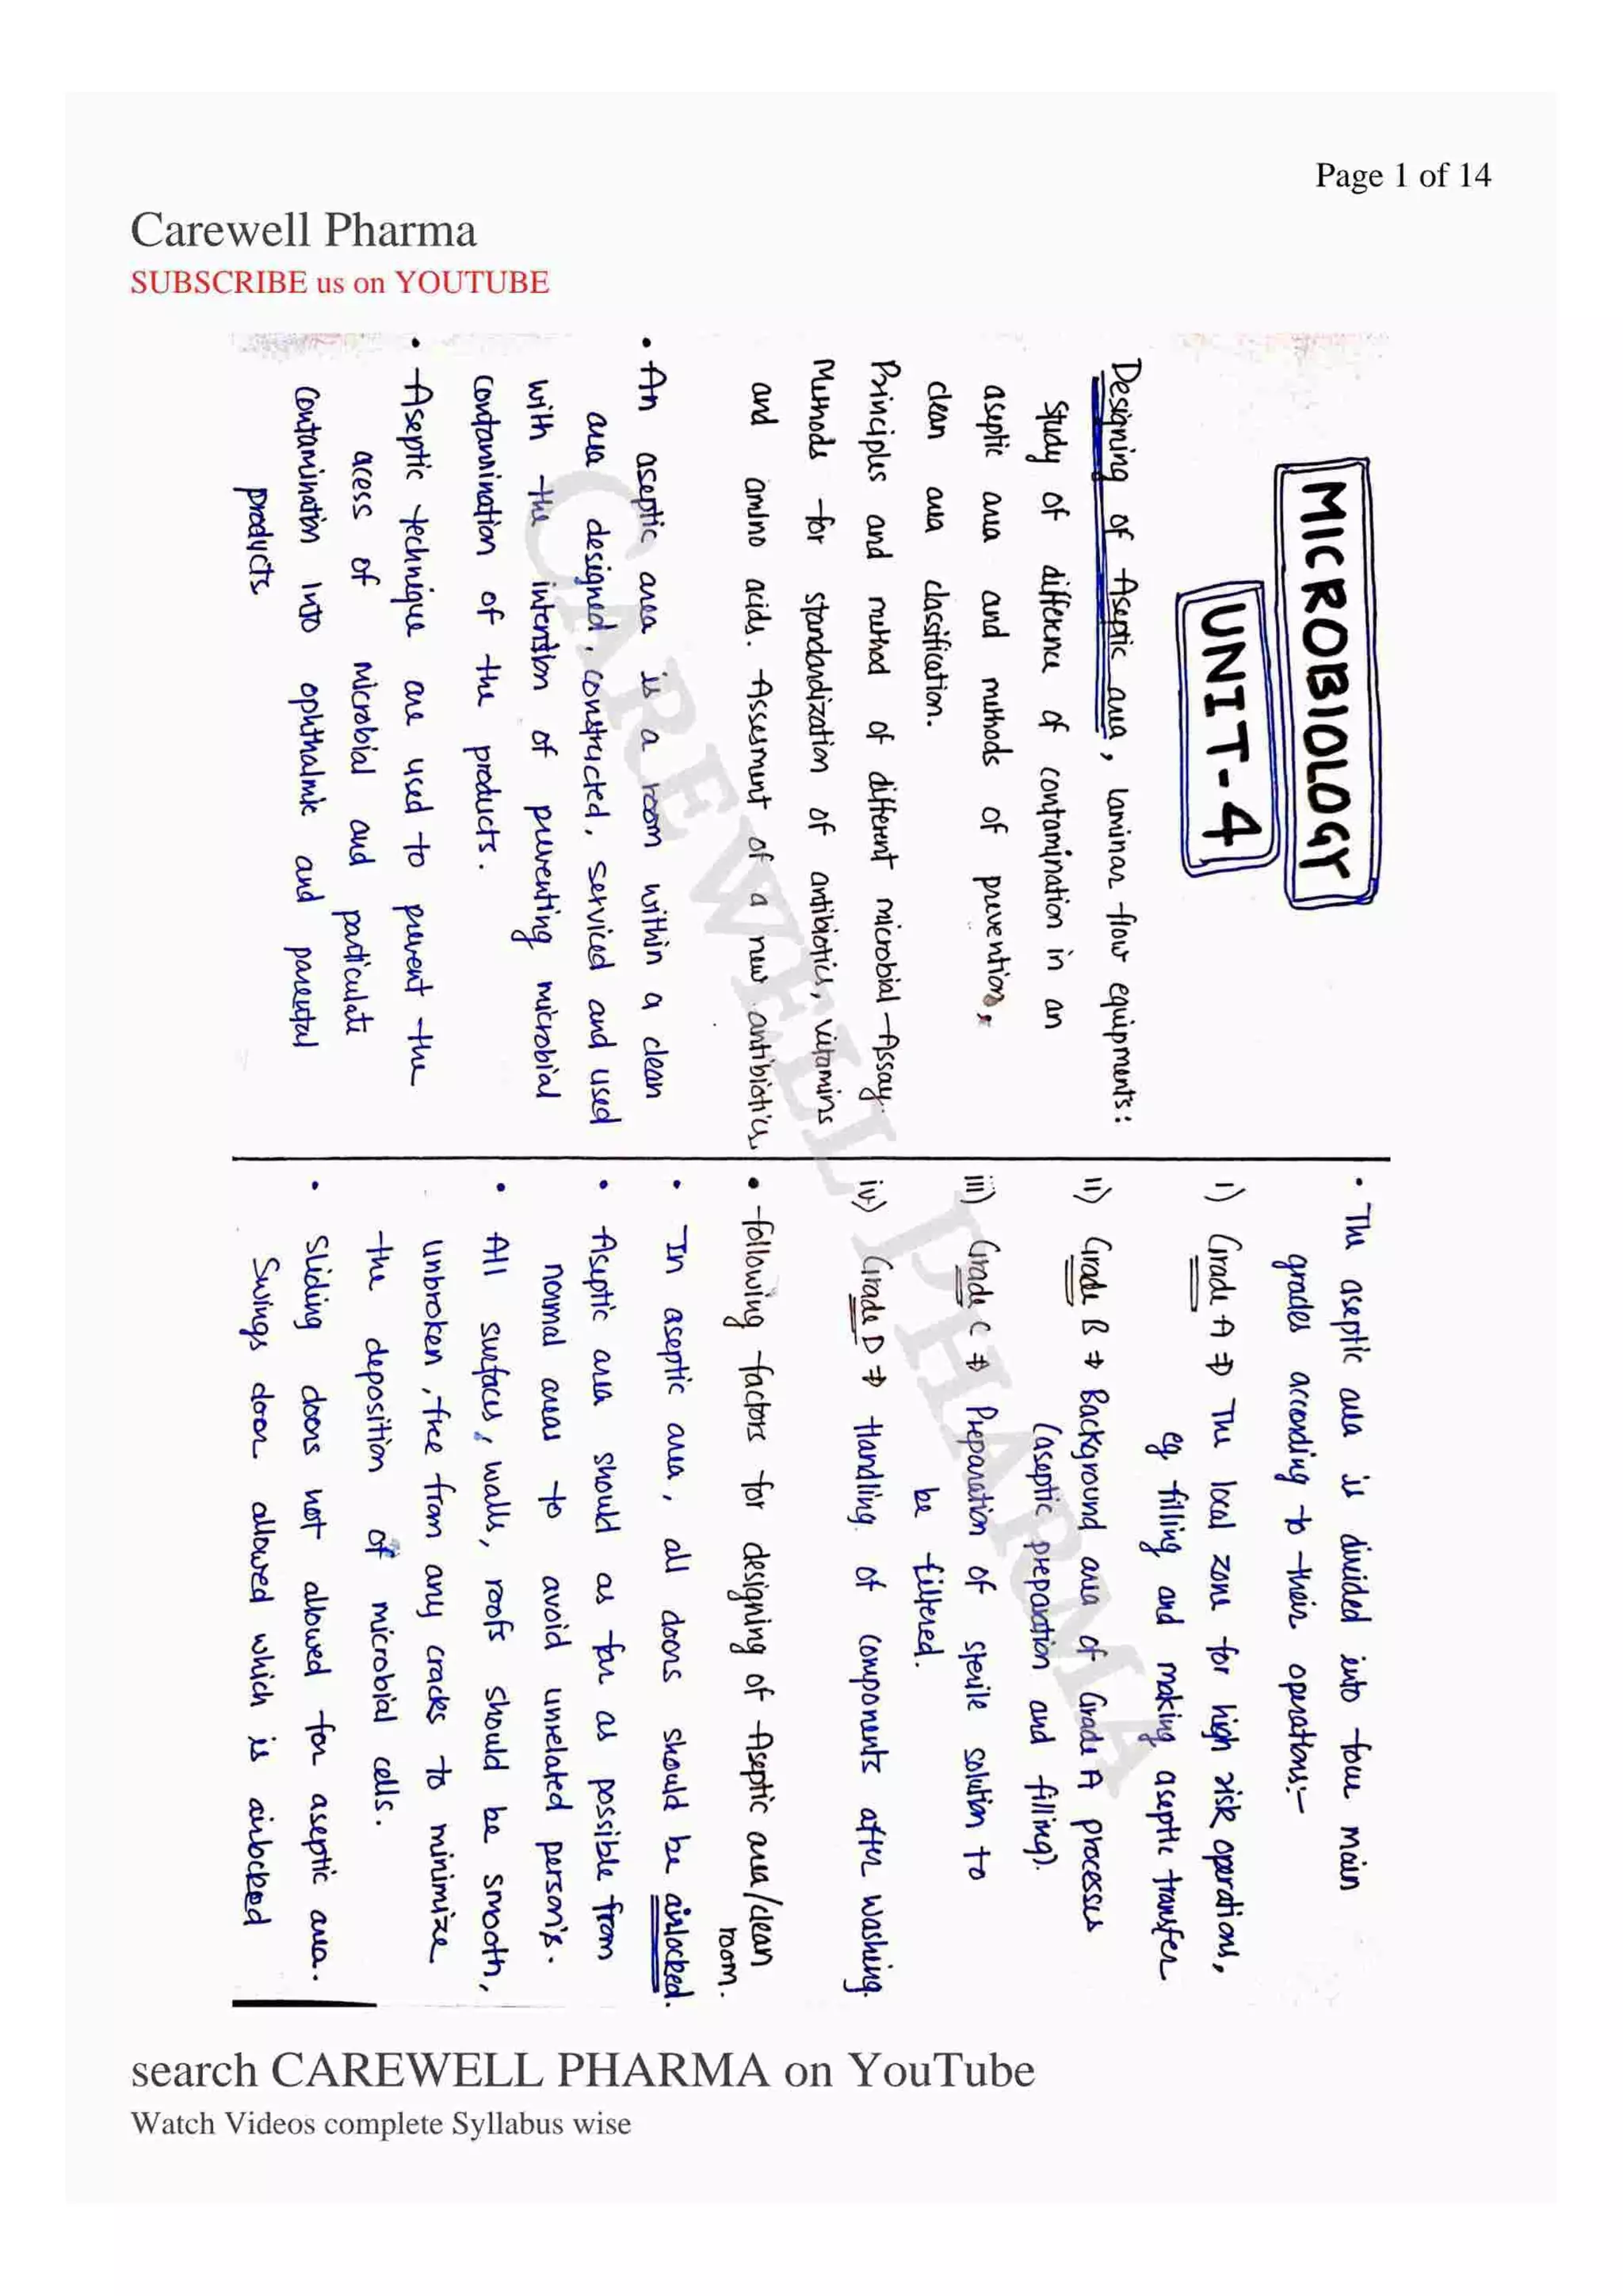 Page 1 of 14
Carewell Pharma
SUBSCRIBE us on YOUTUBE
MICROBIOLOGY
UNIT-4
Designing of Aseptic area, laminar flow equipments:
study of difference of contamination in an
aseptic area and methods of prevention,
clean area classification.
Principles and method of different microbial Assay.
Methods for standardization of antibiotics, vitamins
and amino acids. Assesment of a new antibiotics.
• An aseptic area is a room within a clean
area designed, constructed, serviced and used
with the intention of preventing microbial
contamination of the products.
• Aseptic technique are used to prevent the
acess of microbial and particulate
contamination into ophthalmic and parental
products
• The aseptic area is divided into four main
grades according to their operations:-
i) Grade A ⇒ The local zone for high risk operations,
eg. filling and making aseptic transfer
ii) Grade B ⇒ Background area of Grade A processes
(aseptic preparation and filling).
iii) Grade C ⇒ Preparation of sterile solution to
be filtered.
iv) Grade D ⇒ Handling of components after washing.
• following factors for designing of Aseptic area/clean
room.
• In aseptic area, all doors should be airlocked.
• Aseptic area should as far as possible from
normal areas to avoid unrelated person's.
• All surfaces, walls, roofs should be smooth,
unbroken, free from any cracks to minimize
the deposition of microbial cells.
• Sliding doors not allowed for aseptic area.
Swings door allowed which is airlocked
CAREWELL PHARMA
search CAREWELL PHARMA on YouTube
Watch Videos complete Syllabus wise